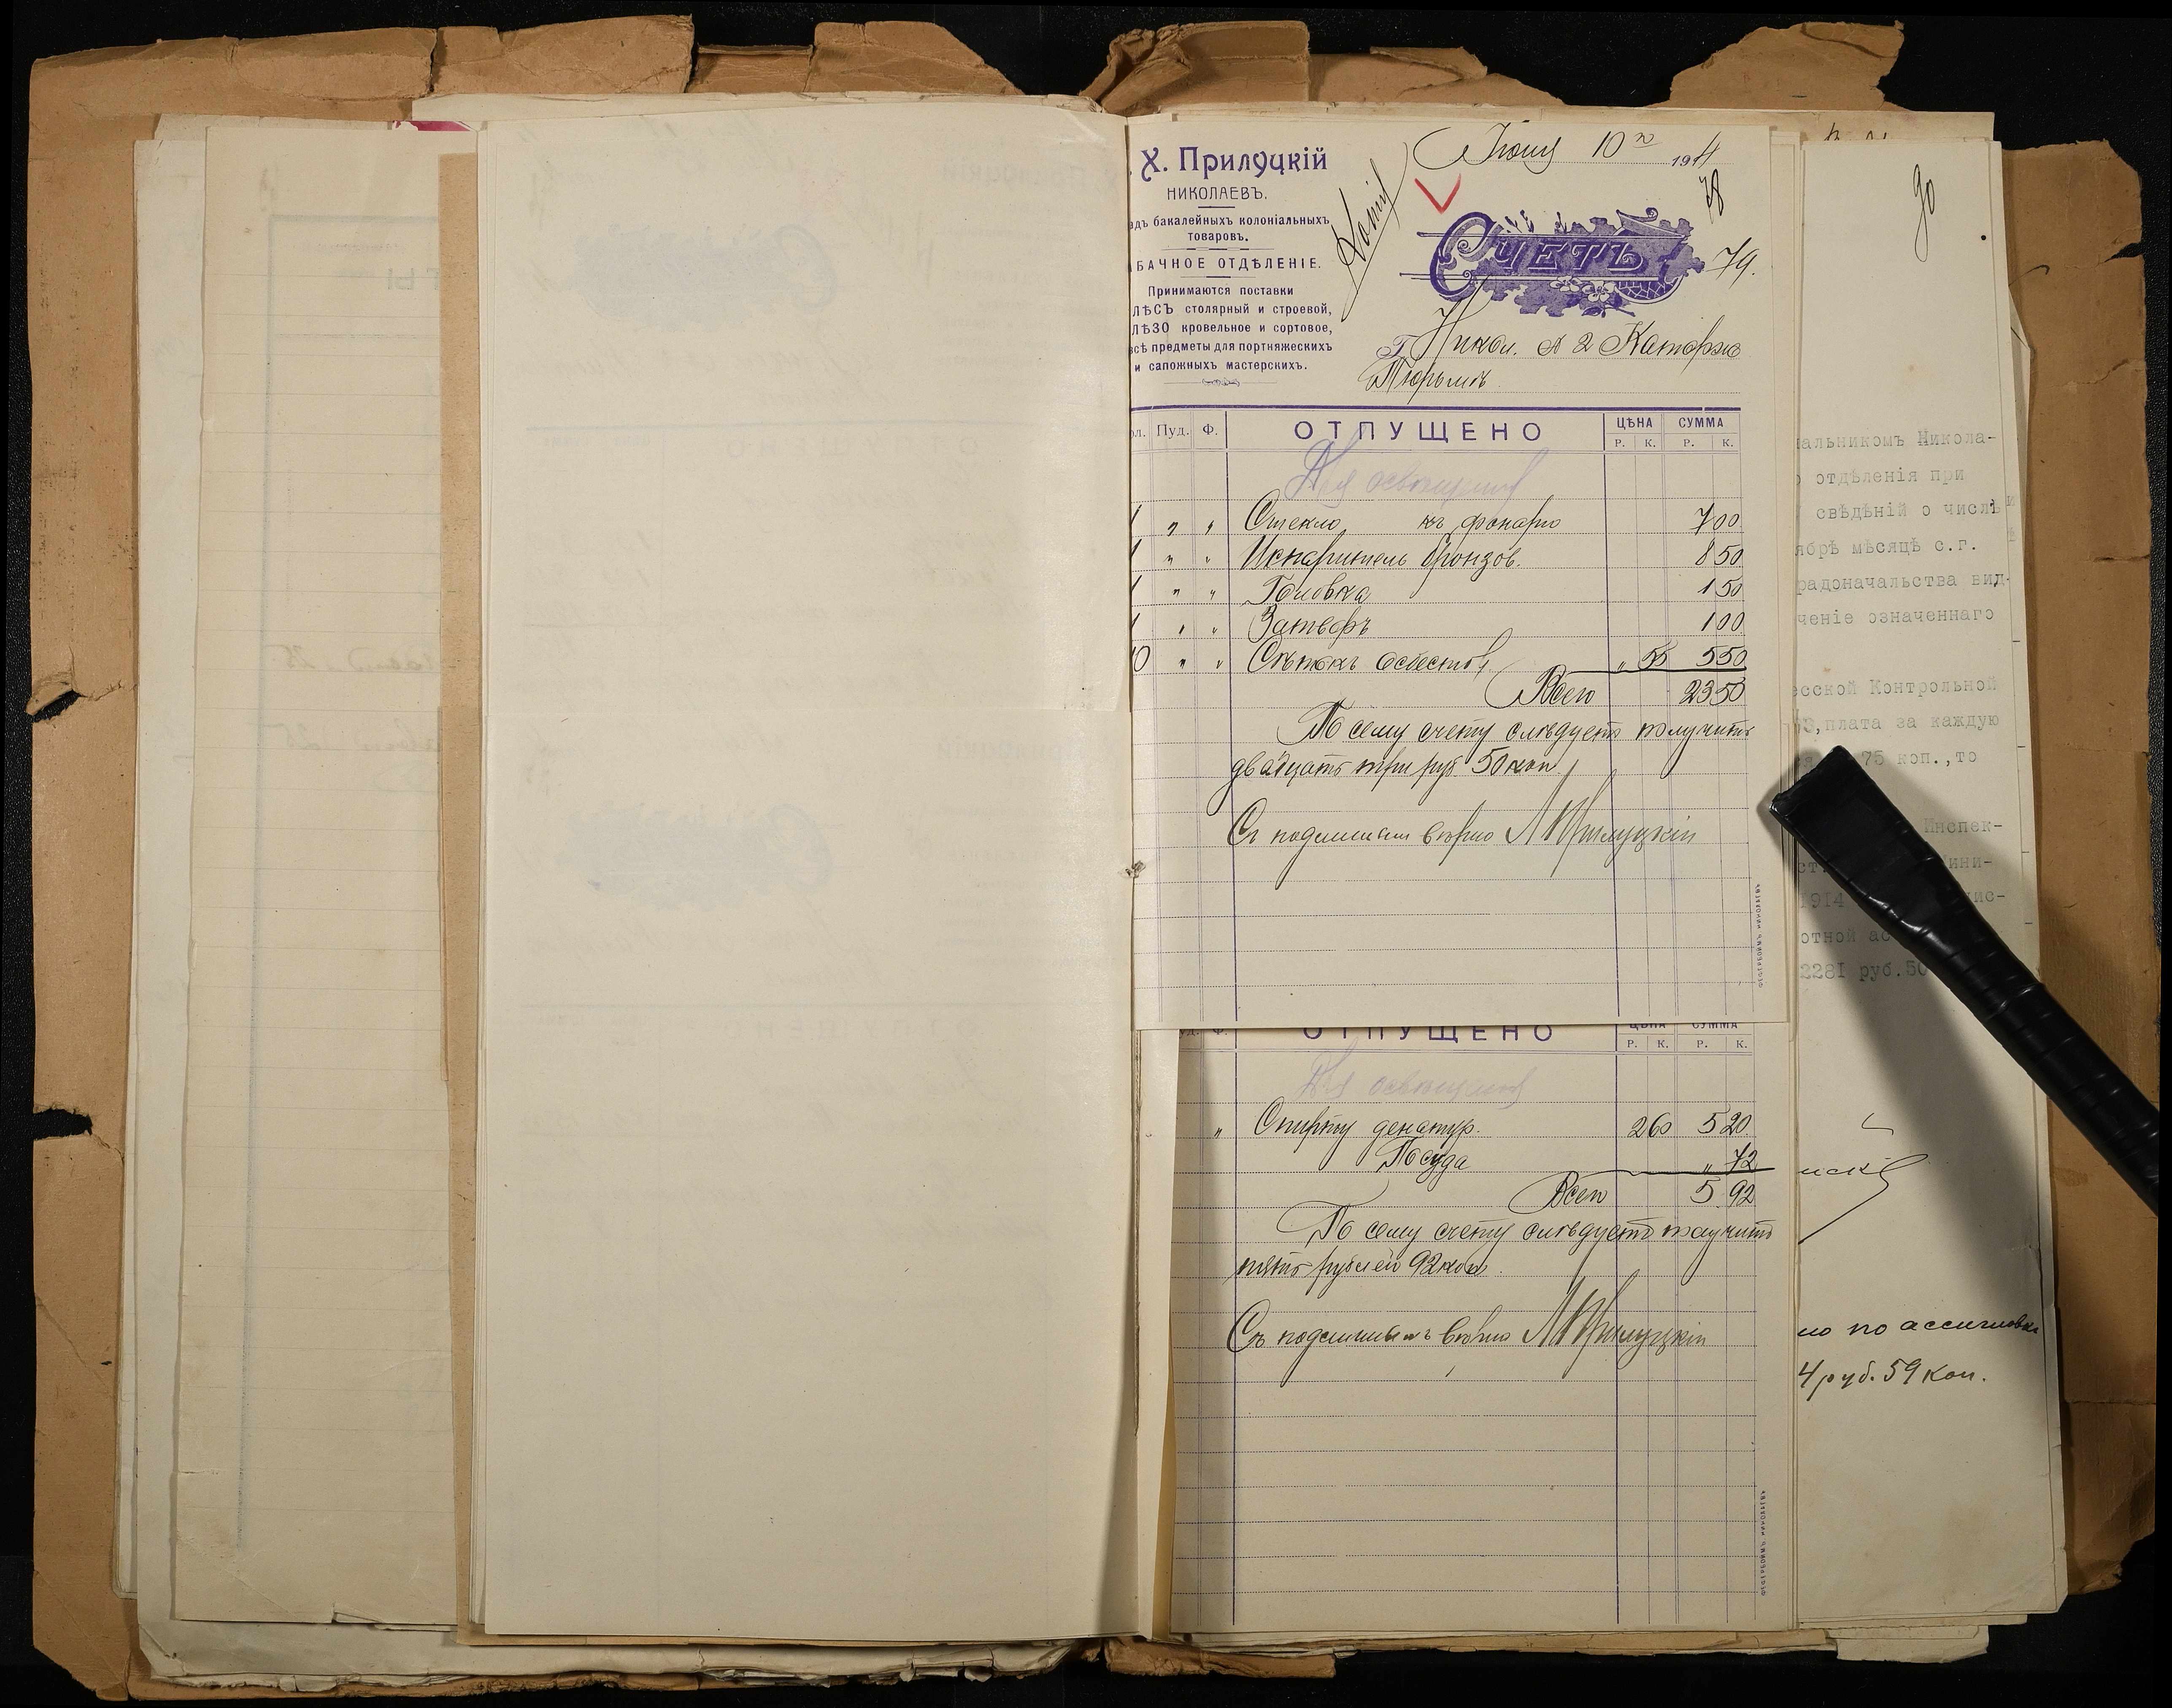 Х. Прилуцкій
НИКОЛАЕВЪ.
адъ бакалейныхъ колоніальныхъ
товаровъ.
БАЧНОЕ ОТДѢЛЕНІЕ.
Принимаются поставки
ЛѢСЪ столярный и строевой,
ЛѢЗО кровельное и сортовое,
всѣ предметы для портняжескихъ
и сапожныхъ мастерскихъ.
Копія
10 1914
78
СЧЕТЪ
79.
Г. Никол. № 2 Каторжн
Тюрьмѣ
ол. Пуд. Ф. ОТПУЩЕНО ЦѢНА СУММА
Р. К. Р. К.
Для освѣщенія
1 „ „ Стекло къ фонарю 7 00
1 „ „ Испаритель бронзов. 8 50
1 „ „ Головка 1 50
1 „ „ Затворъ 1 00
10 „ „ Сѣтокъ „ 55 5 50
Всего 23 50
По сему счету слѣдуетъ получить
двадцать три руб 50 коп
Съ подлиннымъ вѣрно Прилуцкій
ОТПУЩЕНО ЦѢНА СУММА
Р. К. Р. К.
Для освѣщенія
„ Спирту денатур. 2 60 5 20
Посуда „ 72
Всего 5 92
По сему счету слѣдуетъ получить
пять рублей 92 коп.
Съ подлиннымъ вѣрно Прилуцкій
90
альникомъ Никола-
отдѣленія при
свѣдѣній о числѣ
ябрѣ мѣсяцѣ с.г.
радоначальства вид-
ченіе означеннаго
есской Контрольной
,плата за каждую
75 коп.,то
Инспек-
1914
отной ас
2281 руб.50
по ассигновкѣ
4 руб. 59 коп.